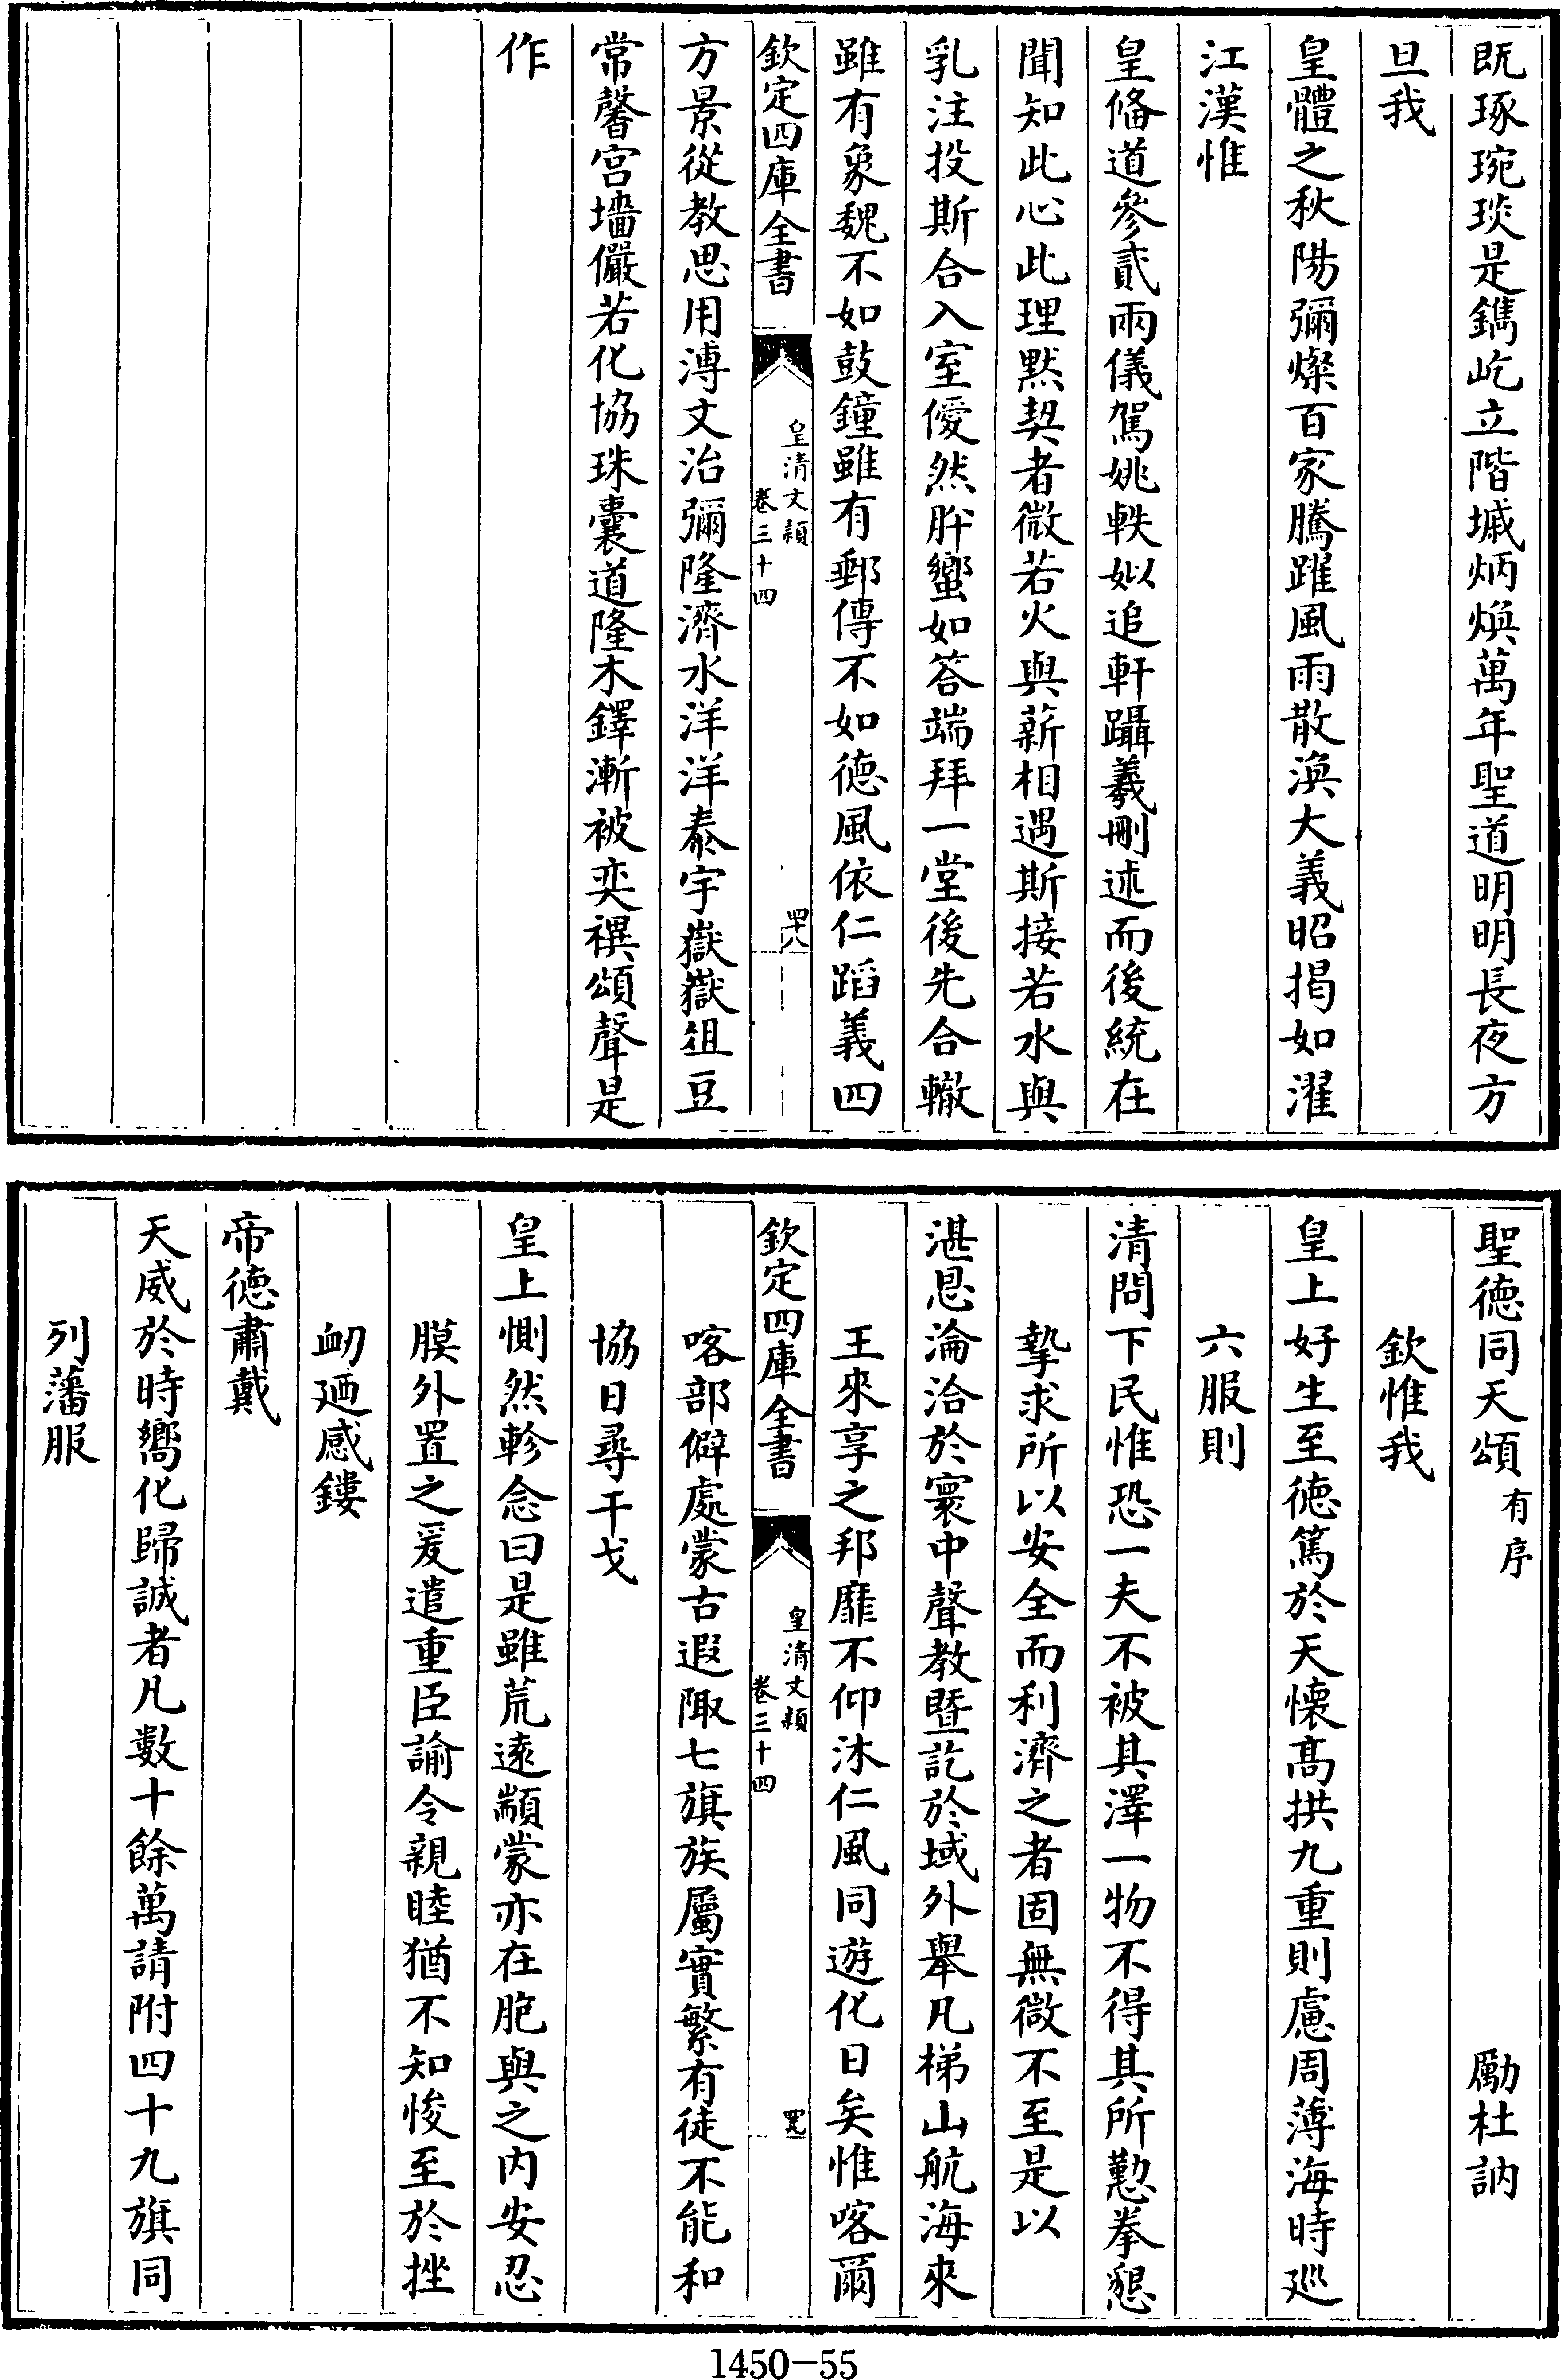 既琢琬琰是鐫屹立階墄炳煥萬年聖道明明長夜方
旦我
皇體之秋陽彌燦百家騰躍風雨散渙大義昭揭如濯
江漢惟
皇脩道參貳兩儀駕姚軼姒追軒躡羲刪述而後統在
聞知此心此理黙契者微若火與薪相遇斯接若水與
乳注投斯合入室僾然肸蠁如答端拜一堂後先合轍
雖有象魏不如鼓鐘雖有郵傳不如徳風依仁蹈義四
欽定四庫全書
皇清文頴
卷三十四
四十八
方景從教思用溥文治彌隆濟水洋洋泰宇嶽嶽俎豆
常馨宫墻儼若化協珠囊道隆木鐸漸被奕禩頌聲是
作
聖徳同天頌有序 勵杜訥
欽惟我
皇上好生至徳篤於天懐髙拱九重則慮周薄海時廵
六服則
清問下民惟恐一夫不被其澤一物不得其所懃拳懇
摯求所以安全而利濟之者固無微不至是以
湛恩淪洽於寰中聲教暨訖於域外舉凡梯山航海來
王來享之邦靡不仰沐仁風同遊化日矣惟喀爾
欽定四庫全書
皇清文頴
卷三十四
四十九
喀部僻處蒙古遐陬七旗族屬實繁有徒不能和
協日尋干戈
皇上惻然軫念曰是雖荒逺顓蒙亦在胞與之内安忍
膜外置之爰遣重臣諭令親睦猶不知悛至於挫
衂廼感鏤
帝徳肅戴
天威於時嚮化歸誠者凡數十餘萬請附四十九旗同
列藩服
1450-55